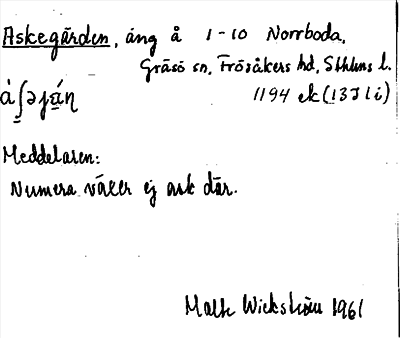 Askegärden, äng å 1-10 Norrboda,
Gräsö sn, Frösåkers hd, Sthlms l.
àʃəɟáṇ 1194 ek (13J1i)
Meddelaren:
Numera växer ej ask där.
Malte Wickström 1961